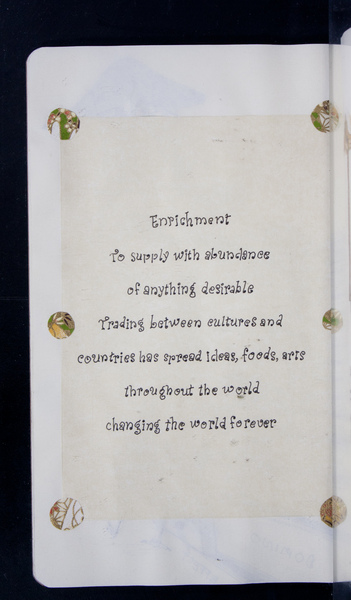 Enrichment
To supply with abundance
of anything desirable
Trading between cultures and
countries has spread ideas, foods, arts
throughout the world
changing the world forever